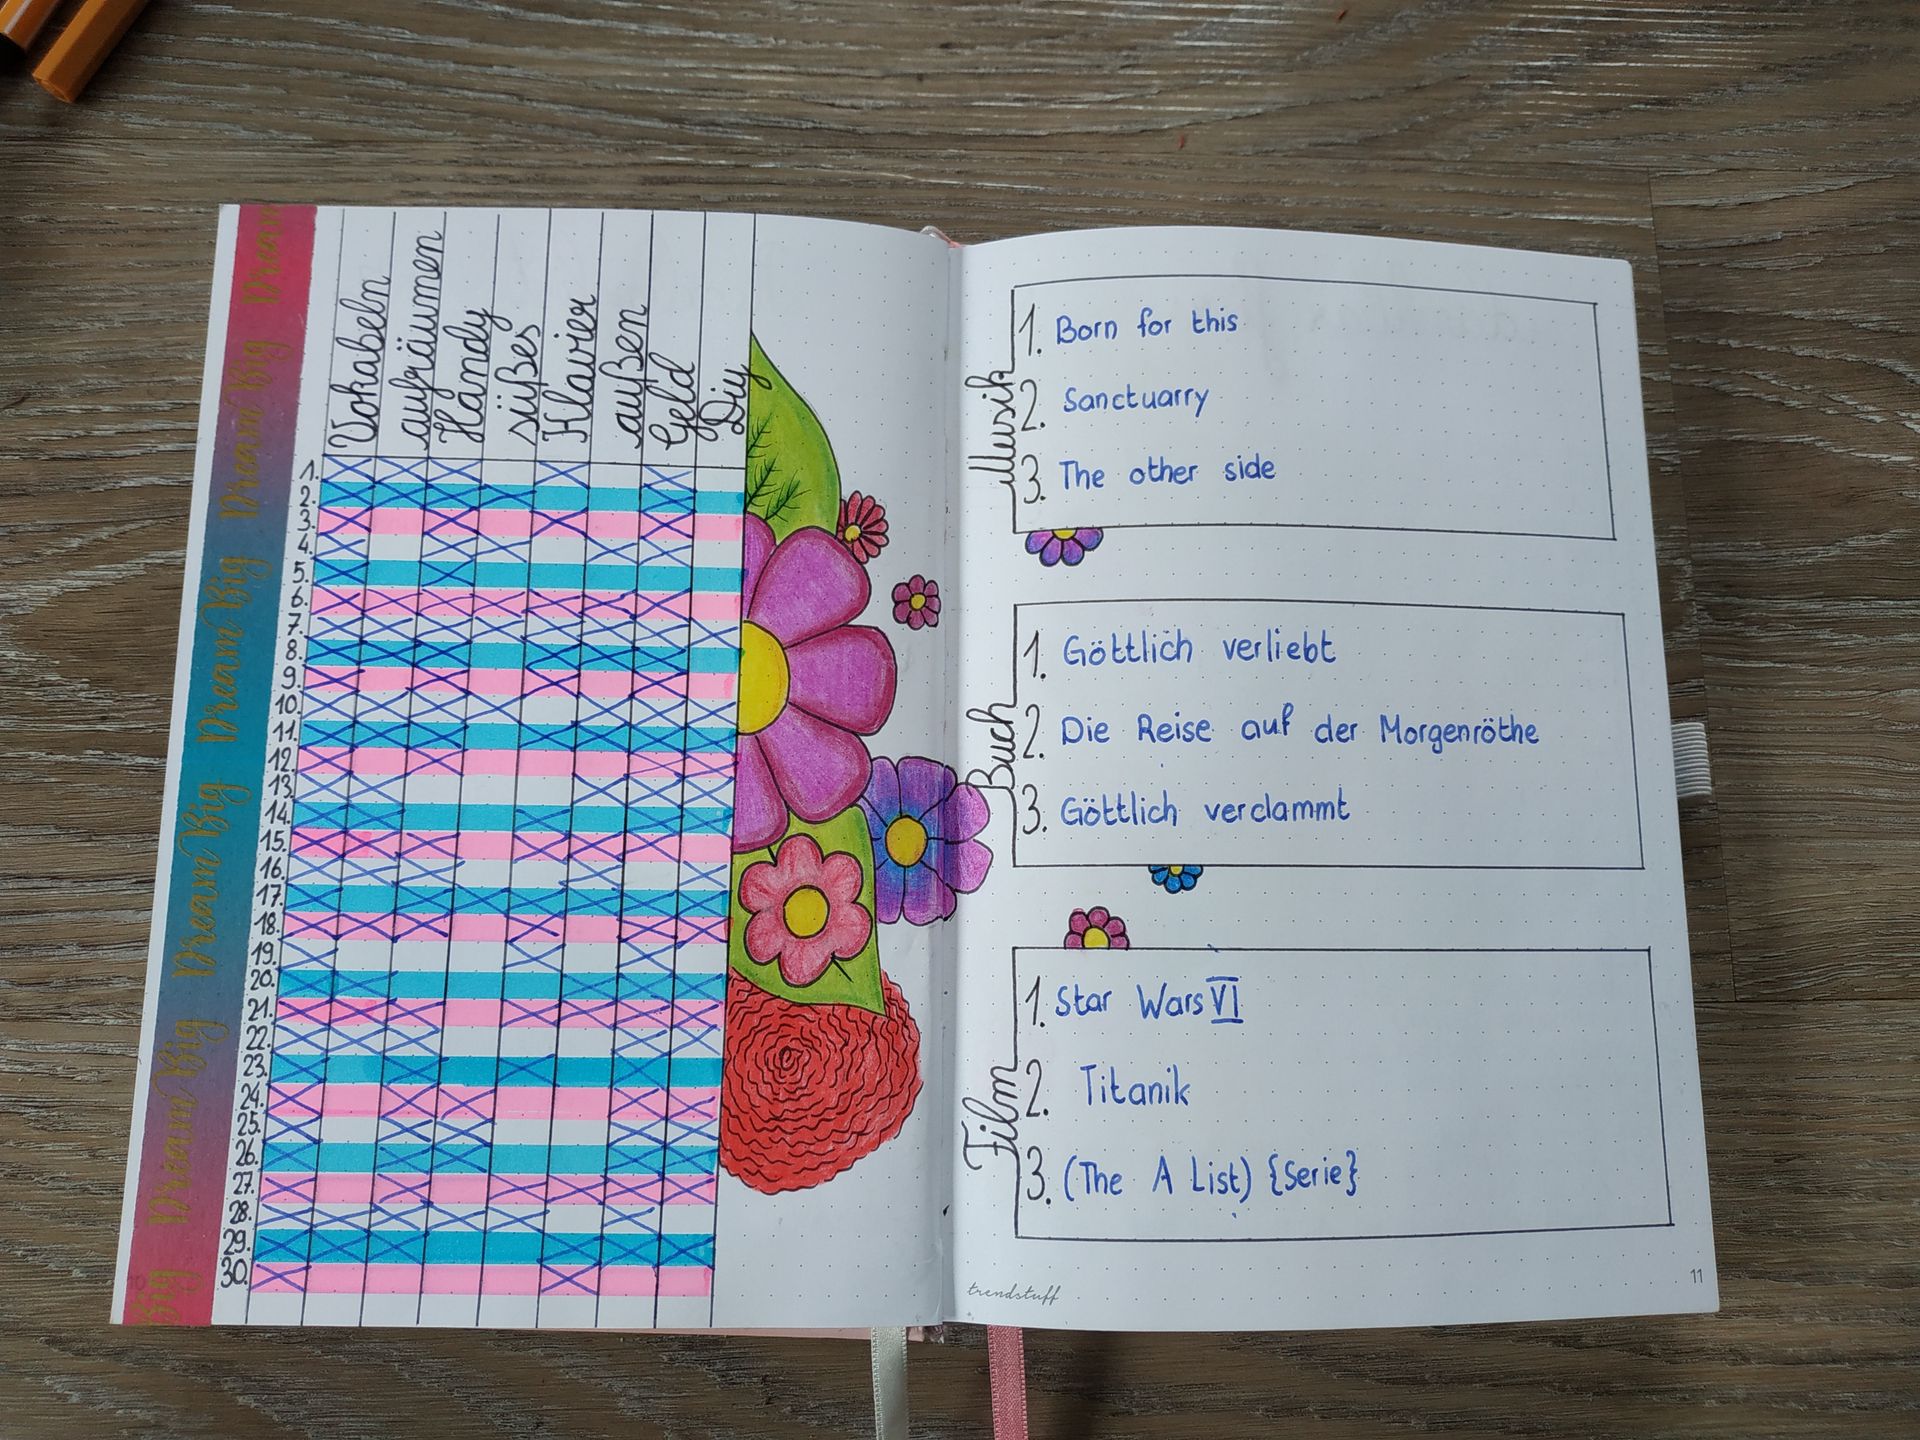 Dream Big Dream Big Dream Big Dream Big Dream Big Dream
Vokabeln
aufräumen
Handy
süßes
Klavier
außen
Geld
Diy
1.
2.
3.
4.
5.
6.
7.
8.
9.
10.
11.
12.
13.
14.
15.
16.
17.
18.
19.
20.
21.
22.
23.
24.
25.
26.
27.
28.
29.
30.
10
Musik
1. Born for this
2. Sanctuarry
3. The other side
Buch
1. Göttlich verliebt
2. Die Reise auf der Morgenröthe
3. Göttlich verdammt
Film
1. Star Wars VI
2. Titanik
3. (The A List) {Serie}
trendstuff
11